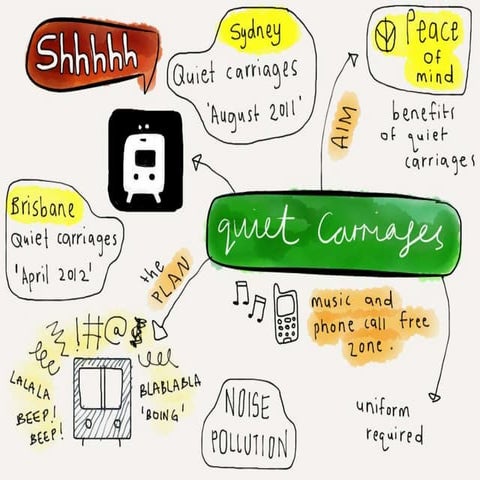 Shhhhh
Sydney
Quiet carriages
'August 2011'
Peace
of
mind
benefits
of quiet
carriages
AIM
Brisbane
Quiet carriages
'April 2012'
quiet Carriages
the
PLAN
music and
phone call free
zone.
!#@
LALALA
BEEP!
BEEP!
BLABLABLA
'BOING'
NOISE
POLLUTION
uniform
required